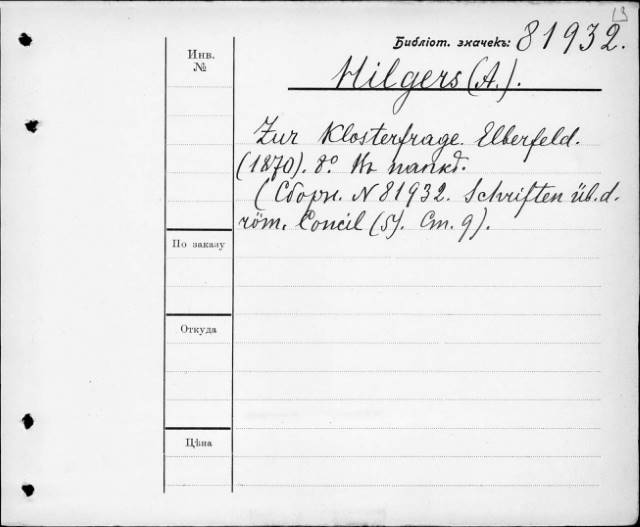 13
Библіот. значекъ: 81932.
Инв. №
Hilgers (A.).
Zur Klosterfrage. Elberfeld.
(1870). 8º. Въ папкѣ.
(Сборн. N 81932. Schriften üb. d.
röm. Concil (5). Ст. 9).
По заказу
Откуда
Цѣна